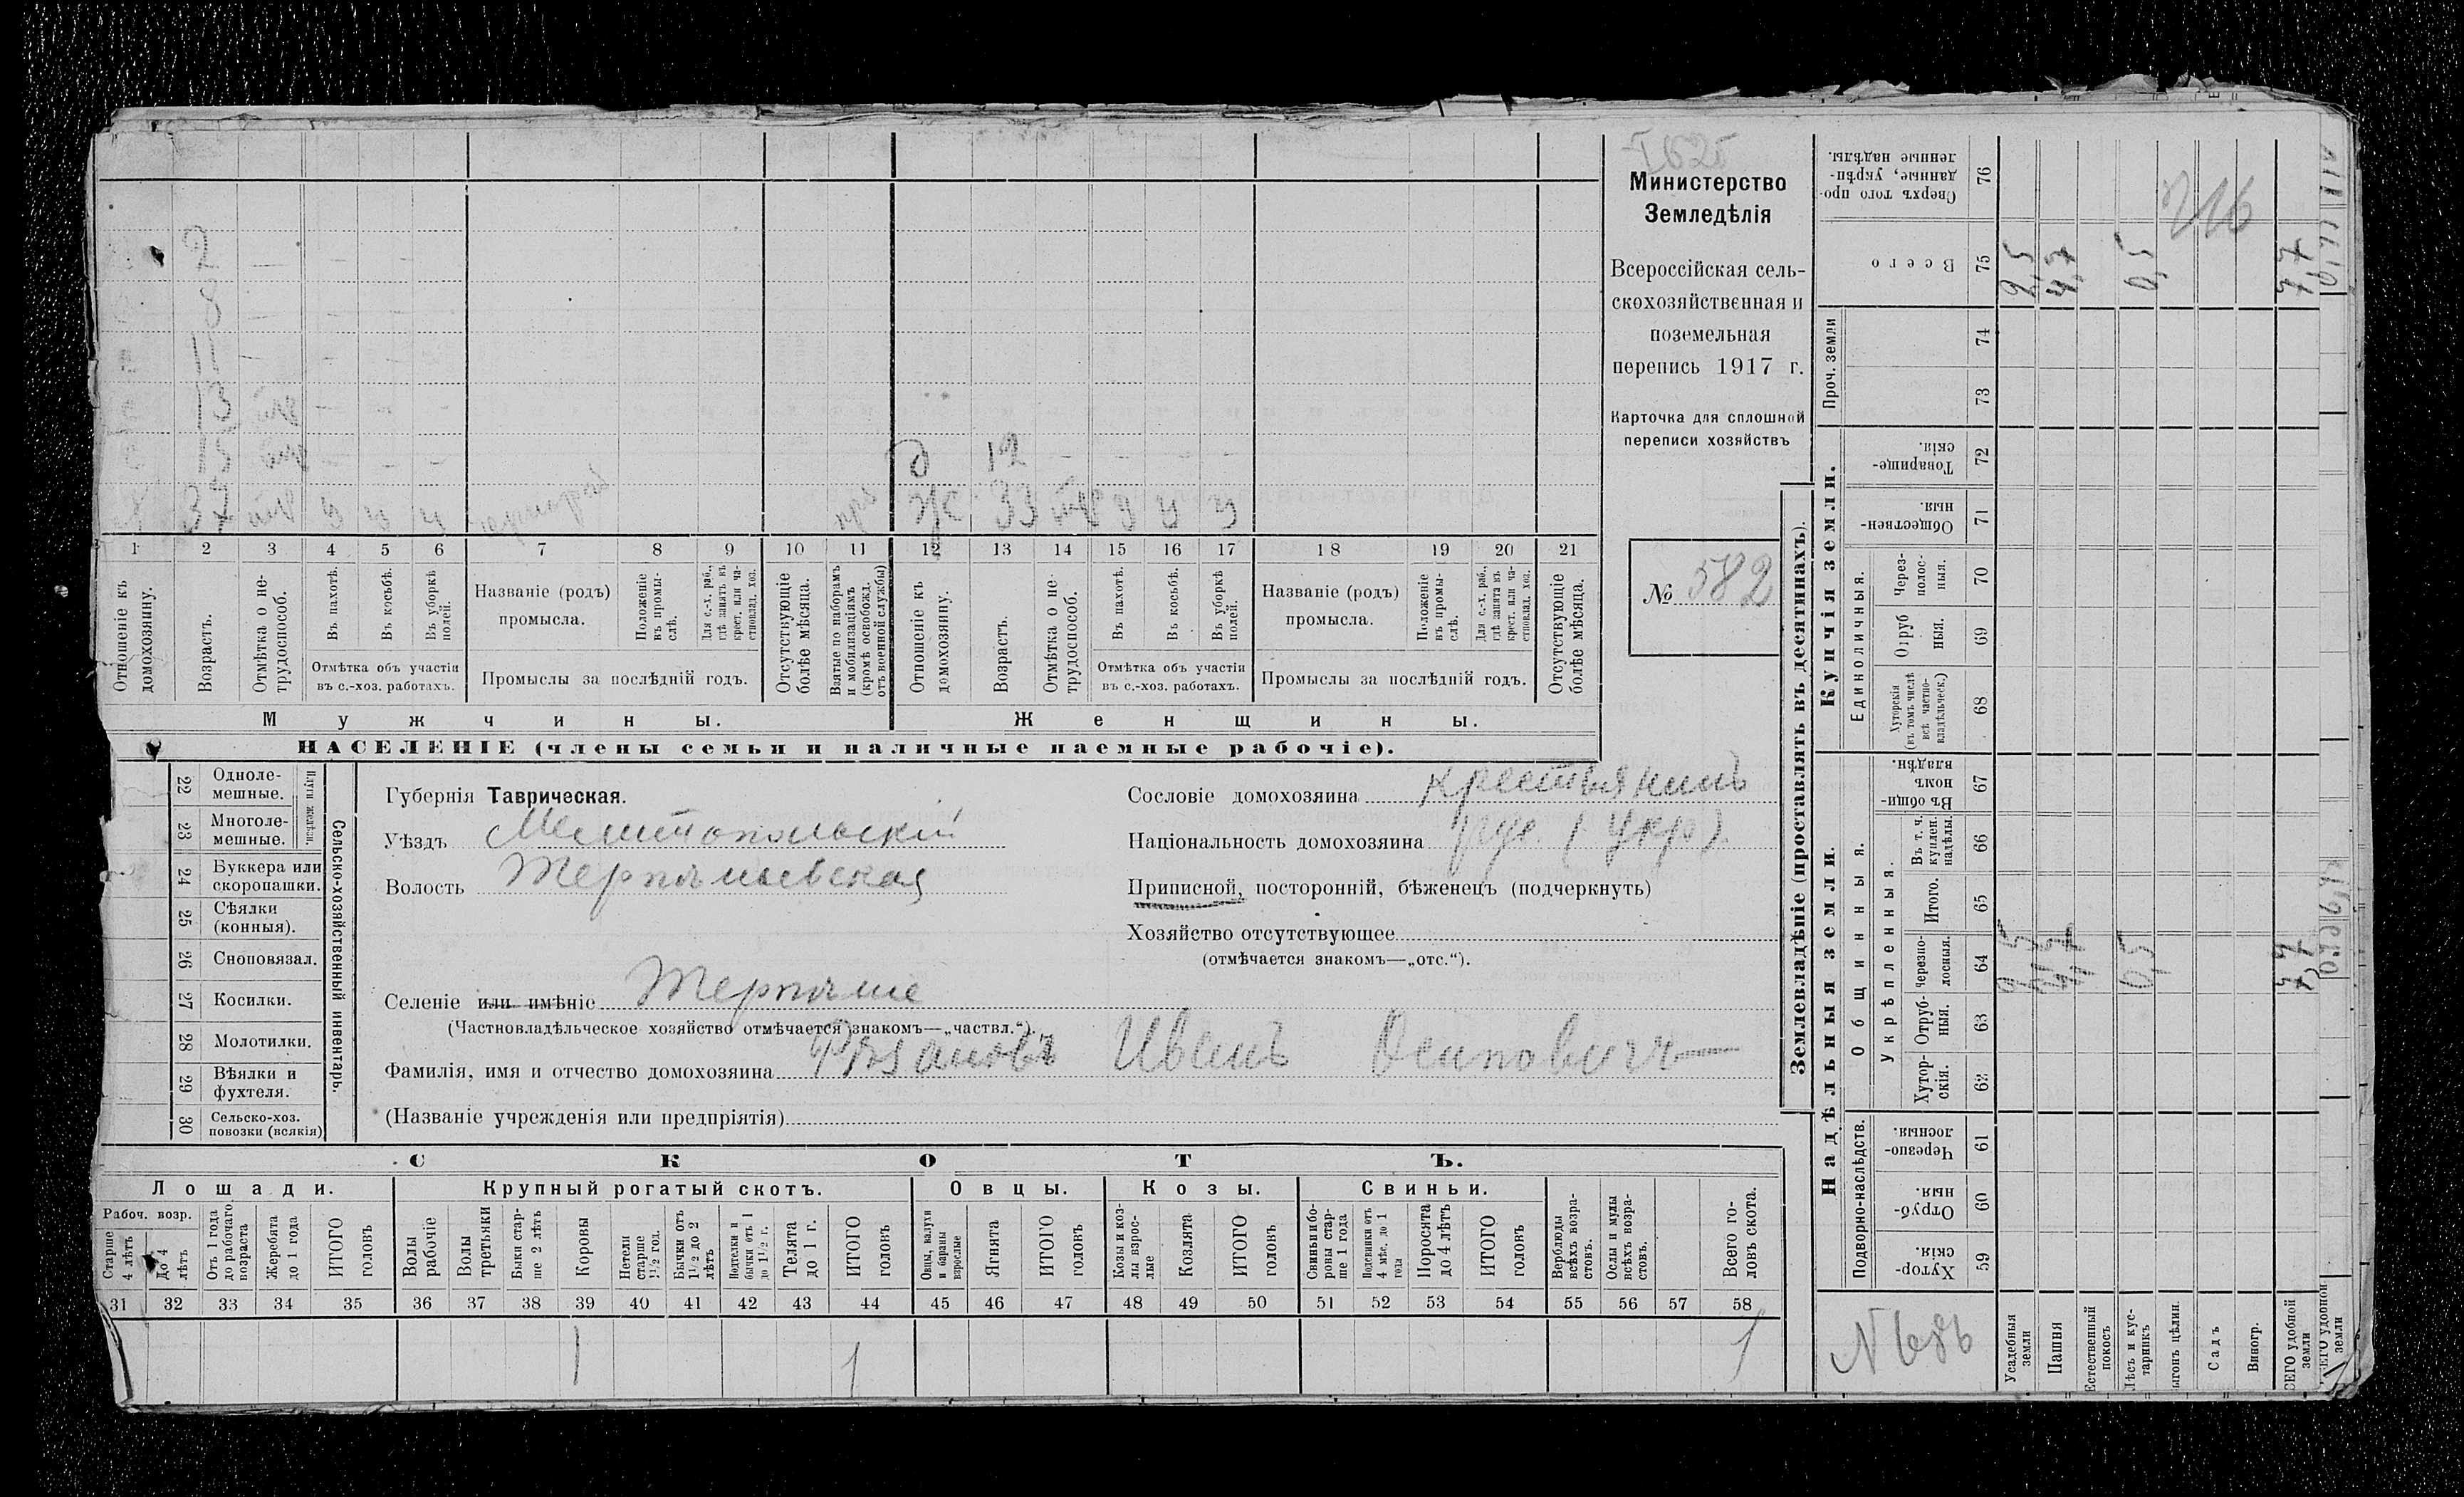 Министерство
Земледѣлія
Всероссійская сель-
скохозяйственная и
поземельная
перепись 1917 г.
Карточка для сплошной
переписи хозяйствъ
№ 582
2 — —
8 — — —
11 — — —
13 — — —
15 — — —
д 12 — — — —
37 у у у
Ж 33 у у у
1 2 3 4 5 6 7 8 9 10 11 12 13 14 15 16 17 18 19 20 21
Отношеніе къ домохозяину.
Возрастъ.
Отмѣтка о не-трудоспособ.
Въ пахотѣ.
Въ косьбѣ.
Въ уборкѣ полей.
Отмѣтка объ участіи въ с.-хоз. работахъ.
Названіе (родъ) промысла.
Положеніе въ промы-слѣ.
Для с.-х. раб., гдѣ занятъ въ крест. или ча-стновлад. хоз.
Промыслы за послѣдній годъ.
Отсутствующіе болѣе мѣсяца.
Взятые по наборамъ и мобилизаціямъ (кромѣ освобожд. отъ военной службы)
Отношеніе къ домохозяину.
Возрастъ.
Отмѣтка о не-трудоспособ.
Въ пахотѣ.
Въ косьбѣ.
Въ уборкѣ полей.
Отмѣтка объ участіи въ с.-хоз. работахъ.
Названіе (родъ) промысла.
Положеніе въ промы-слѣ.
Для с.-х. раб., гдѣ занята въ крест. или ча-стновлад. хоз.
Промыслы за послѣдній годъ.
Отсутствующіе болѣе мѣсяца.
Мужчины.
Женщины.
НАСЕЛЕНІЕ (члены семьи и наличные наемные рабочіе).
22 Одноле-мешные.
23 Многоле-мешные.
Плуги желѣзн.
24 Буккера или скоропашки.
25 Сѣялки (конныя).
26 Сноповязал.
27 Косилки.
28 Молотилки.
29 Вѣялки и фухтеля.
30 Сельско-хоз. повозки (всякія)
Сельско-хозяйственный инвентарь.
Губернія Таврическая.
Уѣздъ Мелитопольскій
Волость Терпѣньевская
Селеніе или имѣніе Терпѣние
(Частновладѣльческое хозяйство отмѣчается знакомъ—„частвл.“).
Фамилія, имя и отчество домохозяина Рязановъ Иванъ Осиповичъ
(Названіе учрежденія или предпріятія)
Сословіе домохозяина крестьянинъ
Національность домохозяина рус. (укр).
Приписной, посторонній, бѣженецъ (подчеркнуть)
Хозяйство отсутствующее
(отмѣчается знакомъ—„отс.“).
СКОТЪ.
Лошади.
Крупный рогатый скотъ.
Овцы.
Козы.
Свиньи.
Рабоч. возр.
Старше 4 лѣтъ
До 4 лѣтъ
Отъ 1 года до рабочаго возраста
Жеребята до 1 года
ИТОГО головъ
Волы рабочіе
Волы третьяки
Быки стар-ше 2 лѣтъ
Коровы
Нетели старше 1½ год.
Бычки отъ 1½ до 2 лѣтъ
Подтелки и бычки отъ 1 до 1½ г.
Телята до 1 г.
ИТОГО головъ
Овцы, валухи и бараны взрослые
Ягнята
ИТОГО головъ
Козы и коз-лы взрос-лые
Козлята
ИТОГО головъ
Свиньи и бо-ровы стар-ше 1 года
Подсвинки отъ 4 мѣс. до 1 года
Поросята до 4 лѣтъ
ИТОГО головъ
Верблюды всѣхъ возра-стовъ.
Ослы и мулы всѣхъ возра-стовъ.
Всего го-ловъ скота.
31 32 33 34 35 36 37 38 39 40 41 42 43 44 45 46 47 48 49 50 51 52 53 54 55 56 57 58
1 1 1
Землевладѣніе (проставлять въ десятинахъ).
Купчія земли.
Надѣльныя земли.
Сверхъ того про-данные, укрѣп-ленные надѣлы. 76
Всего 75
Проч. земли 74 73
Товарище-скія. 72
Обществен-ныя. 71
Единоличныя.
Через-полос-ныя. 70
Отруб ныя. 69
Хуторскія (въ томъ числѣ всѣ частно-владѣльческ.) 68
Общинныя.
Въ общин-номъ владѣн. 67
Укрѣпленныя.
Въ т. ч. куплен. надѣлы. 66
Итого. 65
Черезпо-лосныя. 64
Отруб-ныя. 63
Хутор-скія. 62
Подворно-наслѣдств.
Черезпо-лосныя. 61
Отруб-ныя. 60
Хутор-скія. 59
2,5 4,7 0,5 7,7
2,5 4,7 0,5 7,7
N 686
Усадебныя земли
Пашня
Естественный покосъ
Лѣсъ и кус-тарникъ
Садъ
Виногр.